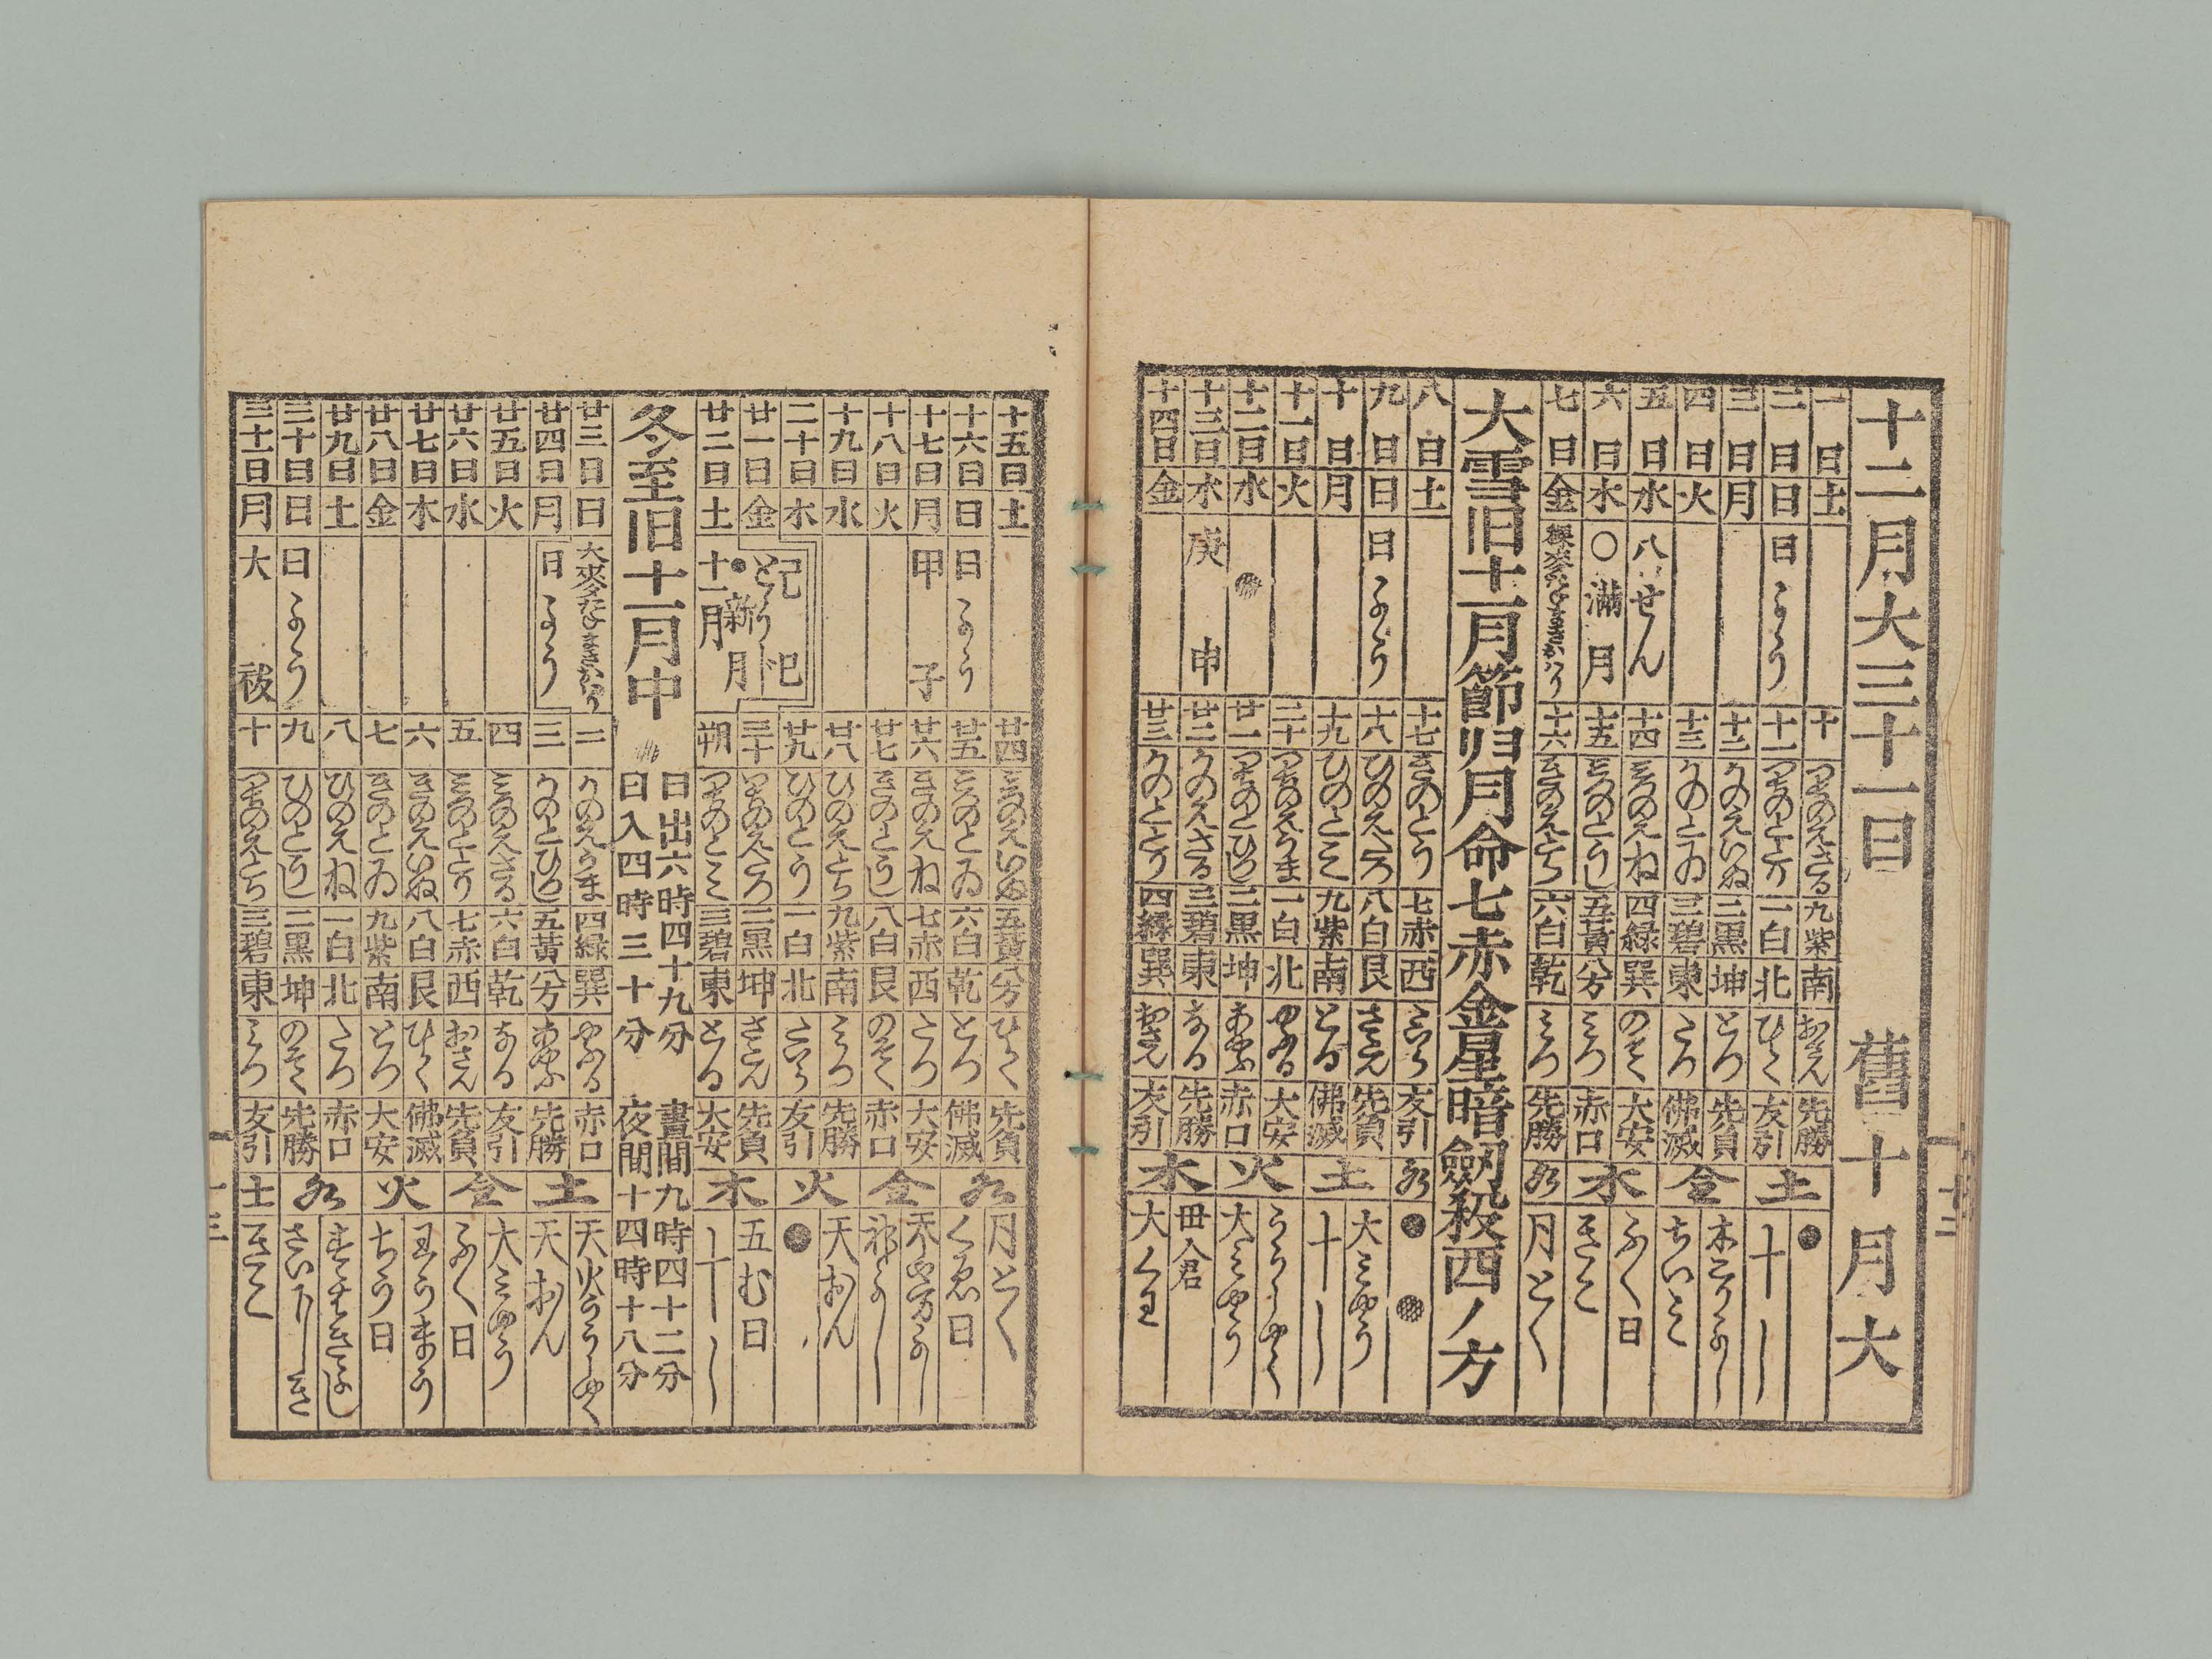 十二月大三十一日 舊十月大
一日 土 十 つちのえさる 九紫 南 おさん 先勝 土 ●
二日 日 日よう 十一 つちのととり 一白 北 ひらく 友引 十し
三日 月 十二 かのえいぬ 二黒 坤 とつ 先負 金 木こりよし
四日 火 十三 かのとゐ 三碧 東 たつ 佛滅 ちいみ
五日 水 八せん 十四 みつのえね 四緑 巽 のそく 大安 水 ふく日
六日 木 〇満月 十五 みつのとうし 五黄 みつ 赤口 きこ
七日 金 十六 きのえとら 六白 乾 みつ 先勝 月とく
大雪旧十一月節归月命七赤金星暗劔殺西ノ方
八日 土 十七 きのとう 七赤 西 たいら 友引 ●
九日 日 日よう 十八 ひのえたつ 八白 艮 さたん 先負 土 大みやう
十日 月 十九 ひのとみ 九紫 南 とる 佛滅 十し
十一日 火 二十 つちのえうま 一白 北 やふる 大安 火
十二日 水 廿一 つちのとひつし 二黒 坤 あやふ 赤口 大みやう
十三日 木 庚申 廿二 かのえさる 三碧 東 なる 先勝 木
十四日 金 廿三 かのととり 四緑 巽 おさん 友引
十五日 土 廿四 みつのえいぬ 五黄 ひらく 先負 月とく
十六日 日 日よう 廿五 みつのとゐ 六白 乾 とつ 佛滅 くゑ日
十七日 月 甲子 廿六 きのえね 七赤 西 たつ 大安 金
十八日 火 廿七 きのとうし 八白 艮 のそく 赤口
十九日 水 廿八 ひのえとら 九紫 南 みつ 先勝 火 天おん
二十日 木 廿九 ひのとう 一白 北 たいら 友引 ●
廿一日 金 三十 つちのえたつ 二黒 坤 さたん 先負 木 五む日
廿二日 土 ●新月 十一月 朔 つちのとみ 三碧 東 とる 大安 十し
冬至旧十一月中 日出六時四十九分 晝間九時四十二分
日入四時三十分 夜間十四時十八分
廿三日 日 二 かのえうま 四緑 巽 やふる 赤口 土
廿四日 月 日よう 三 かのとひつし 五黄 あやふ 先勝 天おん
廿五日 火 四 みつのえさる 六白 乾 なる 友引 金 大みやう
廿六日 水 五 みつのととり 七赤 西 おさん 先負 ふく日
廿七日 木 六 きのえいぬ 八白 艮 ひらく 佛滅 火
廿八日 金 七 きのとゐ 九紫 南 とつ 大安 ちう日
廿九日 土 八 ひのえね 一白 北 たつ 赤口
三十日 日 日よう 九 ひのとうし 二黒 坤 のそく 先勝
三十一日 月 大祓 十 つちのえとら 三碧 東 みつ 友引 土 きこく